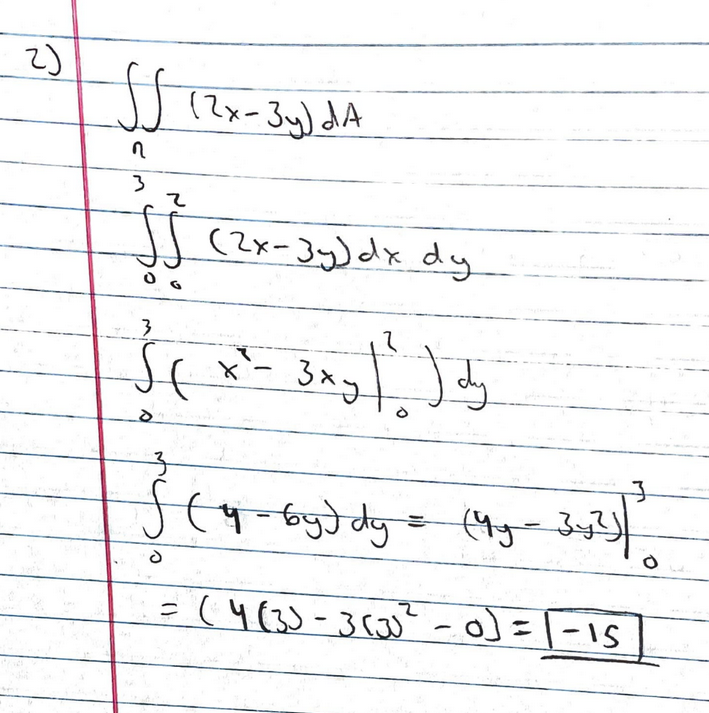 2)
∬ (2x-3y) dA
R
∫₀³ ∫₀² (2x-3y) dx dy
∫₀³ ( x² - 3xy |₀² ) dy
∫₀³ (4 - 6y) dy = (4y - 3y²)|₀³
= (4(3) - 3(3)² - 0) = -15